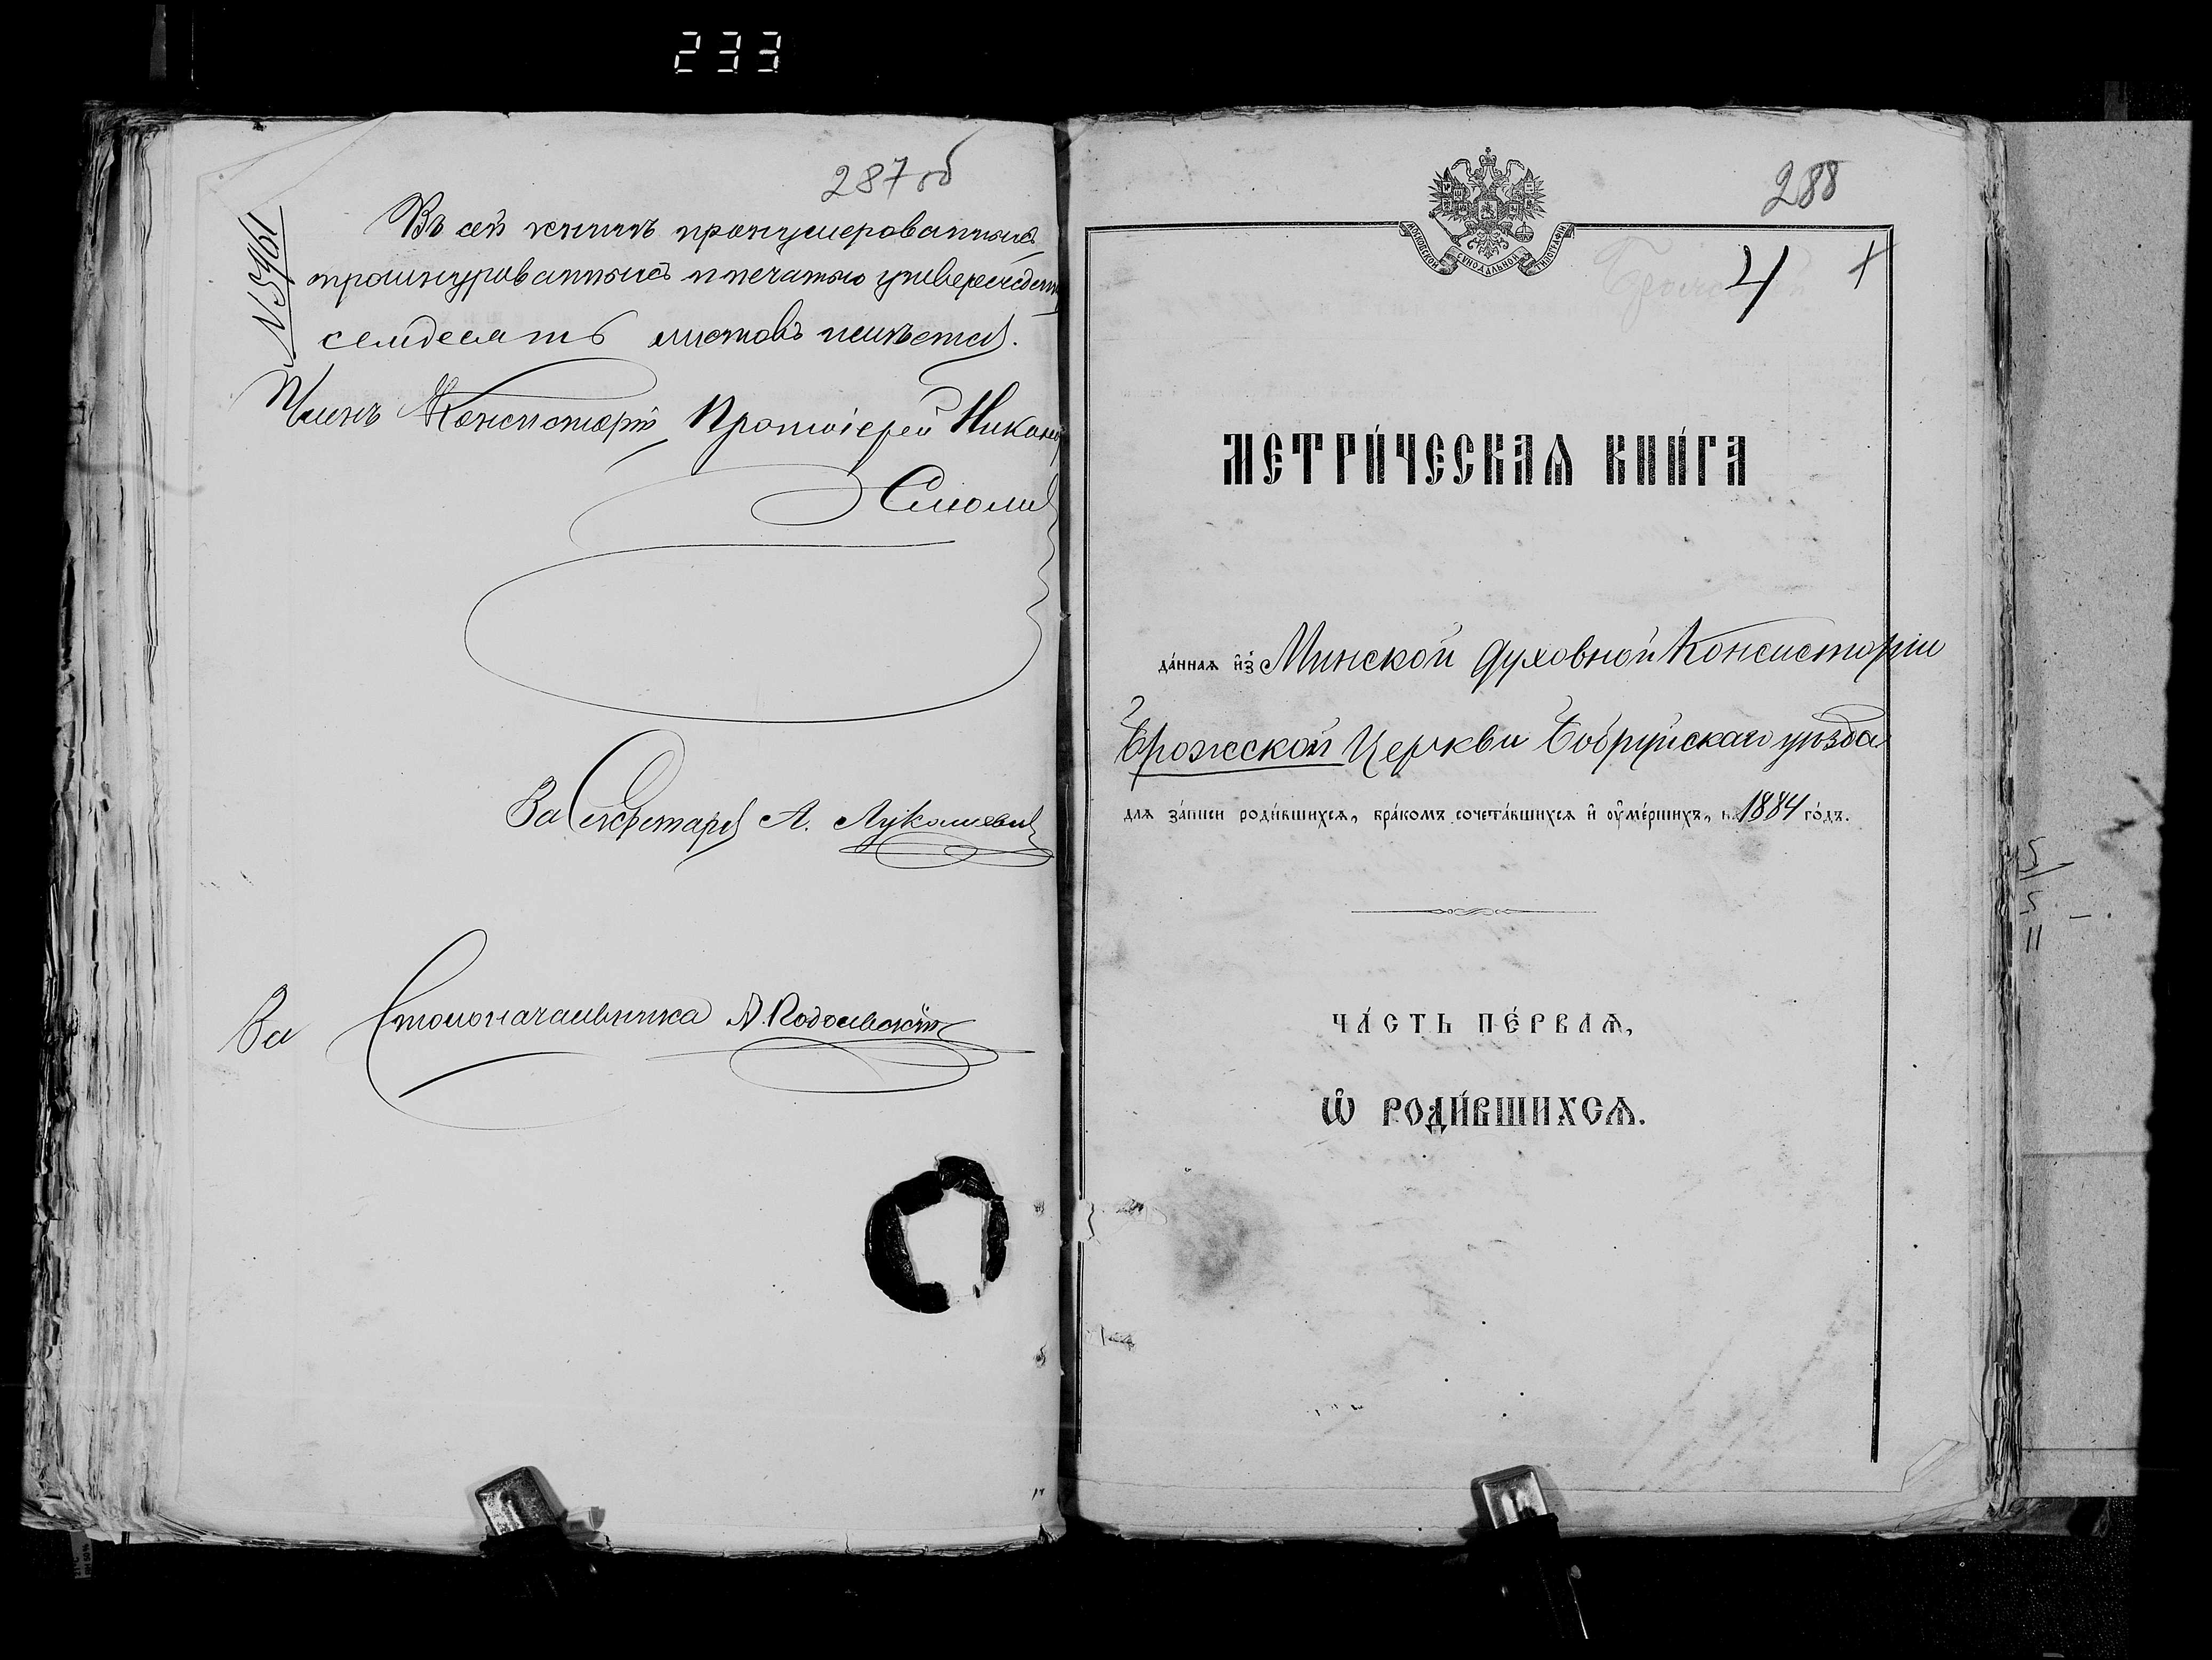 233
287 об
№ 5961
Въ сей книгѣ пронумерованныхъ
прошнурованныхъ и печатью утвержденн
семдесятъ листовъ имѣется.
Членъ Консисторіи Протоіерей Никанор
Смолич
За Секретаря А. Лукашевич
За Столоначальника
288
МОСКОВСКОЙ СѴНОДАЛЬНОЙ ТИПОГРАФІИ
4
МЕТРИ́ЧЕСКАѦ КНИ́ГА
да́ннаѧ и҆з̾ Минской Духовной Консисторіи
Брожской Церкви Бобруйскаго уѣзда
длѧ за́писи роди́вшихсѧ, бра́комъ сочета́вшихсѧ и҆ оу҆ме́ршихъ, на 1884 го́дъ.
ЧА́СТЬ ПЕ́РВАѦ,
Ѡ҆ РОДИ́ВШИХСѦ.